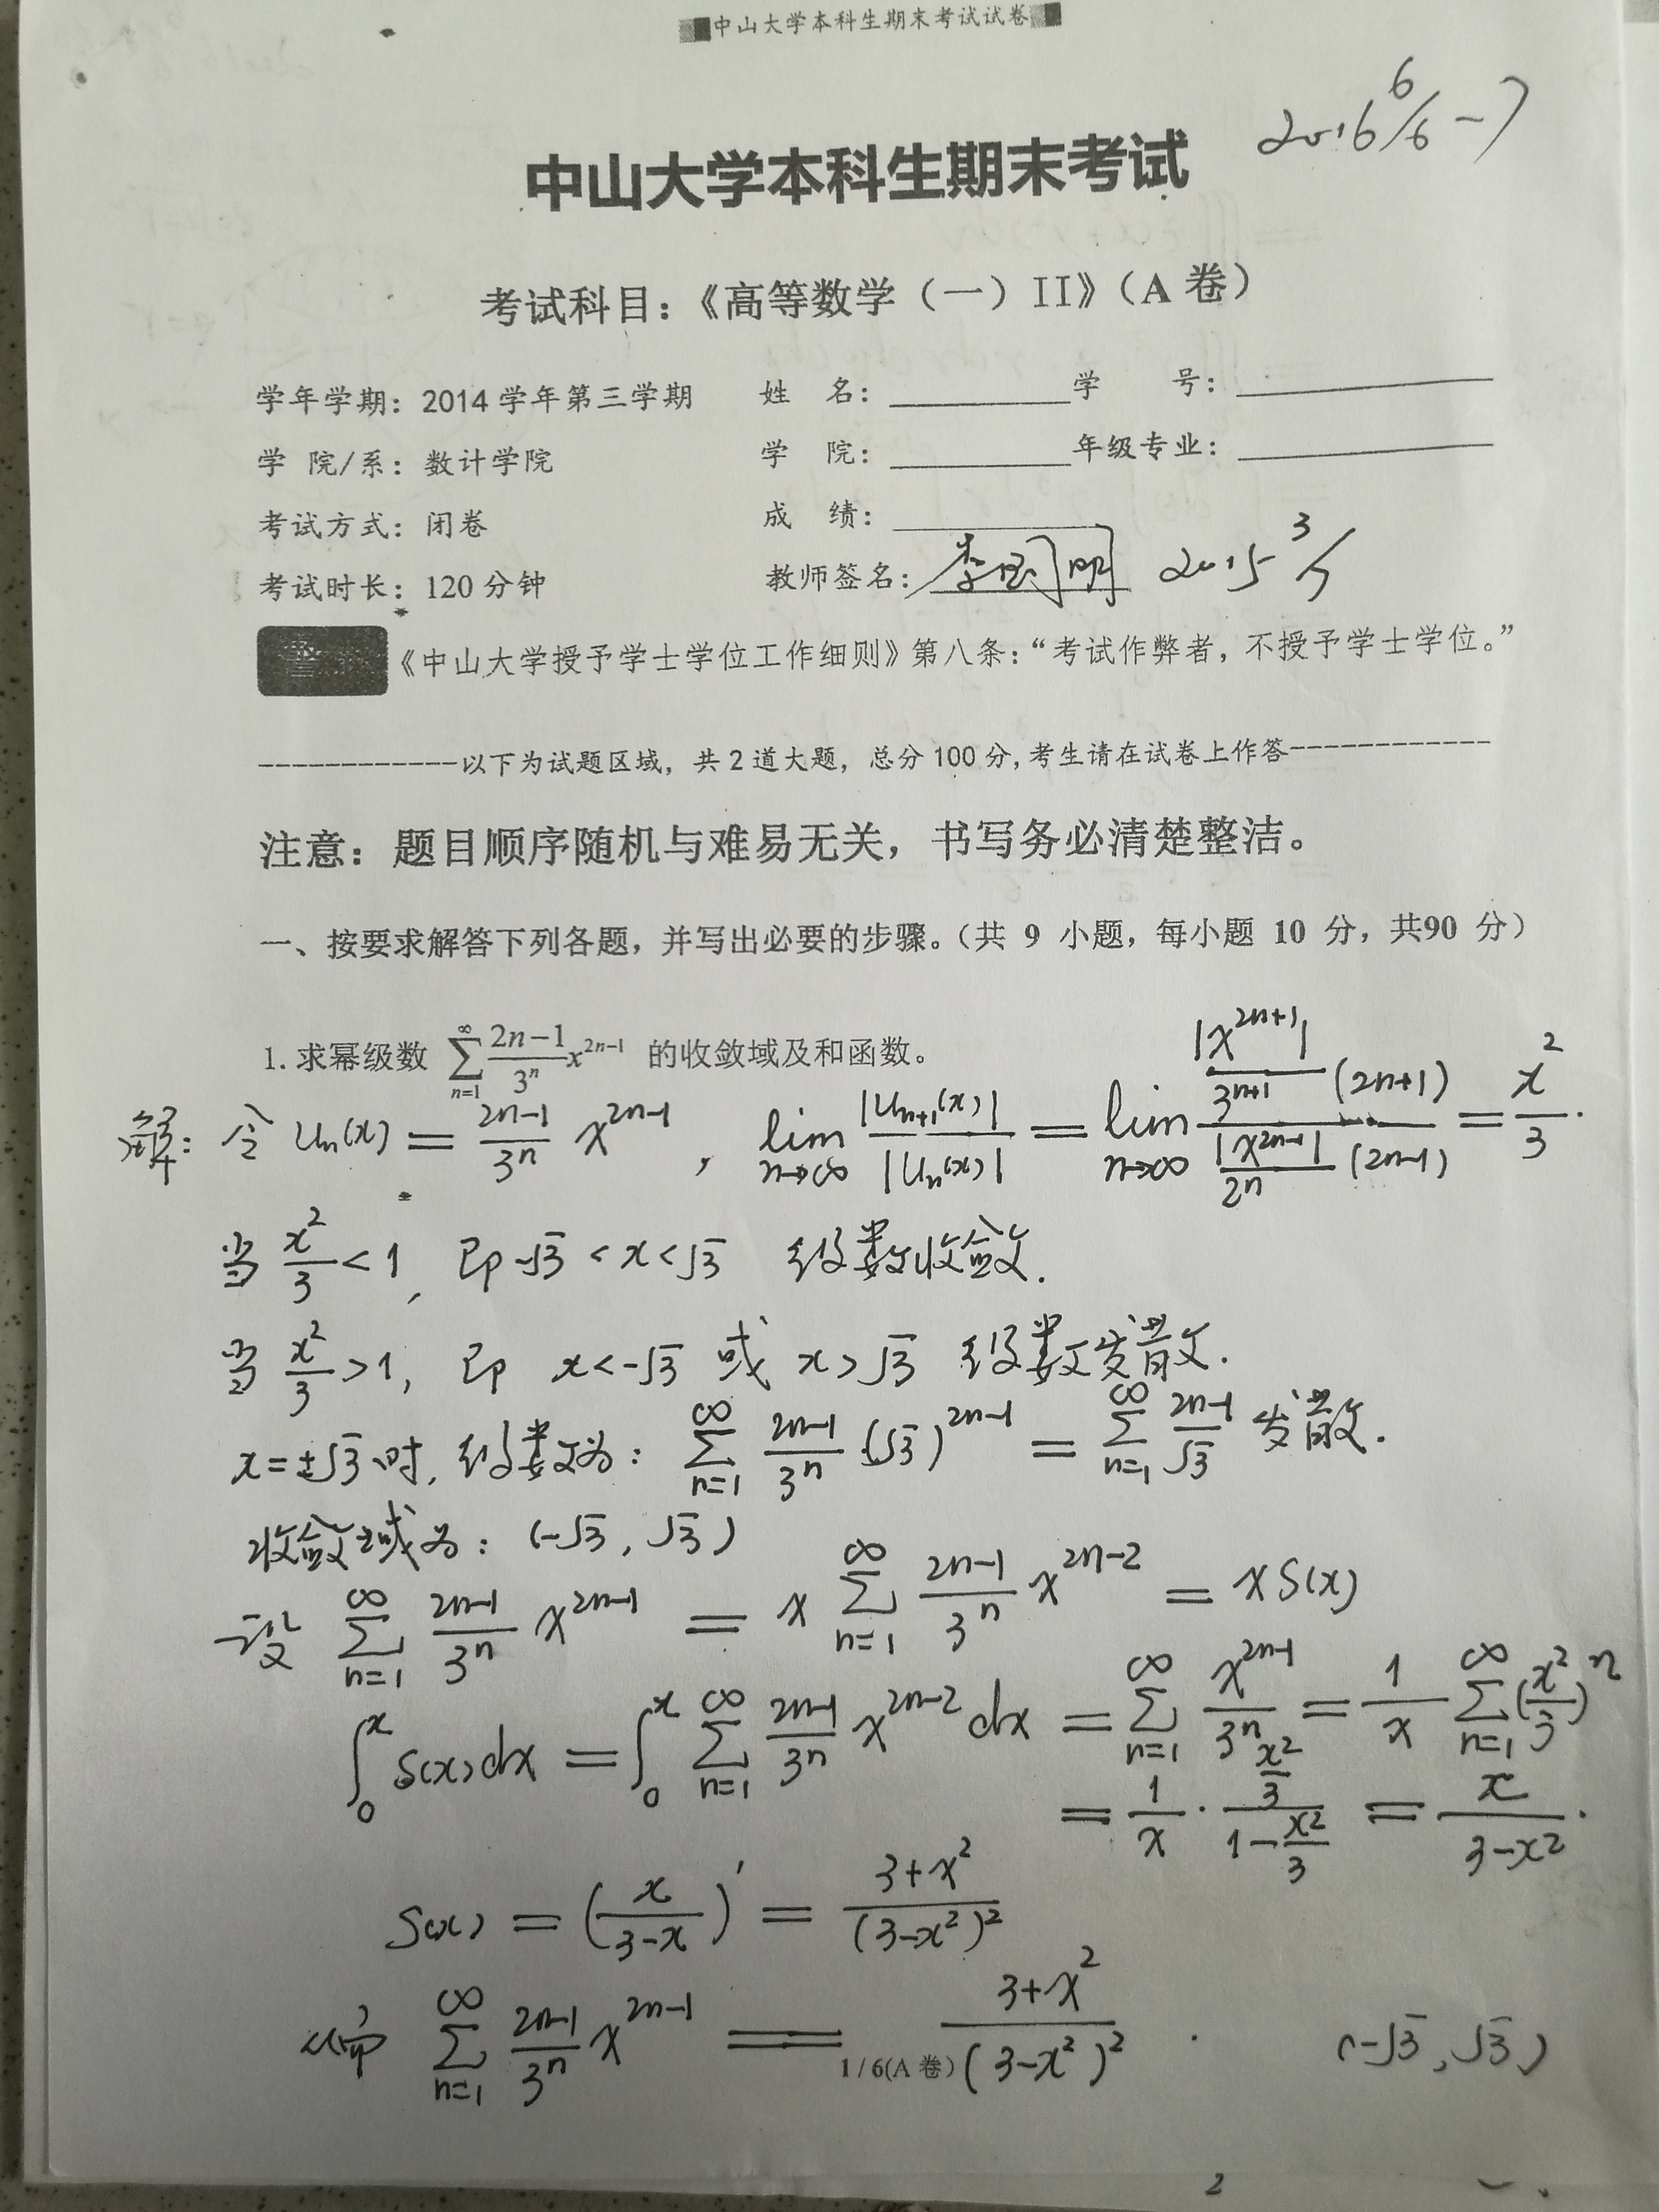 中山大学本科生期末考试试卷
2016 6/6-7
中山大学本科生期末考试
考试科目：《高等数学（一）II》（A 卷）
学年学期：2014 学年第三学期 姓 名： 学 号：
学 院/系：数计学院 学 院： 年级专业：
考试方式：闭卷 成 绩：
考试时长：120 分钟 教师签名： 2015 3/7
《中山大学授予学士学位工作细则》第八条：“考试作弊者，不授予学士学位。”
------------以下为试题区域，共 2 道大题，总分 100 分，考生请在试卷上作答------------
注意：题目顺序随机与难易无关，书写务必清楚整洁。
一、按要求解答下列各题，并写出必要的步骤。（共 9 小题，每小题 10 分，共90 分）
1. 求幂级数 \sum_{n=1}^{∞} \frac{2n-1}{3^n} x^{2n-1} 的收敛域及和函数。
解：令 u_n(x) = \frac{2n-1}{3^n} x^{2n-1}， \lim_{n→∞} \frac{|u_{n+1}(x)|}{|u_n(x)|} = \lim_{n→∞} \frac{\frac{|x^{2n+1}|}{3^{n+1}}(2n+1)}{\frac{|x^{2n-1}|}{2^n}(2n-1)} = \frac{x^2}{3}.
当 \frac{x^2}{3} < 1，即 -√3 < x < √3 级数收敛.
当 \frac{x^2}{3} > 1，即 x < -√3 或 x > √3 级数发散.
x = ±√3 时，级数为：\sum_{n=1}^{∞} \frac{2n-1}{3^n} · (√3)^{2n-1} = \sum_{n=1}^{∞} \frac{2n-1}{√3} 发散.
收敛域为：(-√3, √3)
设 \sum_{n=1}^{∞} \frac{2n-1}{3^n} x^{2n-1} = x \sum_{n=1}^{∞} \frac{2n-1}{3^n} x^{2n-2} = x S(x)
\int_0^x S(x)dx = \int_0^x \sum_{n=1}^{∞} \frac{2n-1}{3^n} x^{2n-2} dx = \sum_{n=1}^{∞} \frac{x^{2n-1}}{3^n} = \frac{1}{x} \sum_{n=1}^{∞} (\frac{x^2}{3})^n
= \frac{1}{x} · \frac{\frac{x^2}{3}}{1-\frac{x^2}{3}} = \frac{x}{3-x^2}.
S(x) = (\frac{x}{3-x})' = \frac{3+x^2}{(3-x^2)^2}
\sum_{n=1}^{∞} \frac{2n-1}{3^n} x^{2n-1} = \frac{3+x^2}{(3-x^2)^2} . (-√3, √3)
1 / 6(A 卷)
2